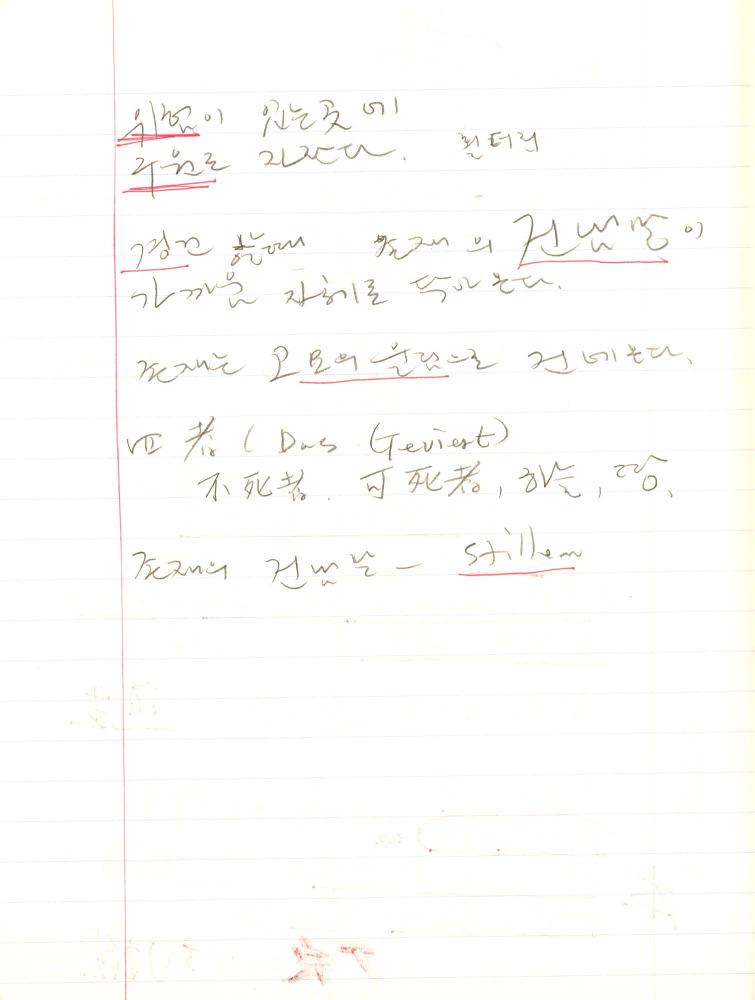 위험이 있는 곳에
구원도 자란다. 횔더린
경건 할 때 존재의 건넴말이
가까움 자체로 다가온다.
존재는 고요의 울림으로 건네온다.
四者 (Das Geviert)
不死者, 可死者, 하늘, 땅.
존재의 건넴말 — stillen